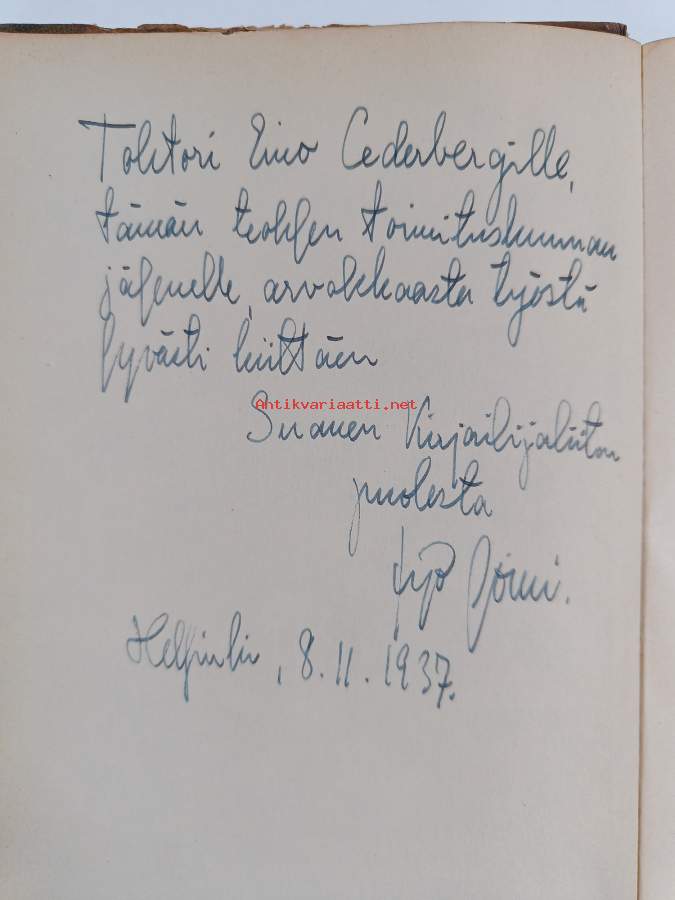 Tohtori Eino Cederbergille,
tämän teoksen toimituskunnan
jäsenelle, arvokkaasta työstä
hyvästi kiittäen
Antikvariaatti.net
Suomen Kirjailijaliiton
puolesta
Yrjö Jylhä.
Helsinki, 8.11.1937.